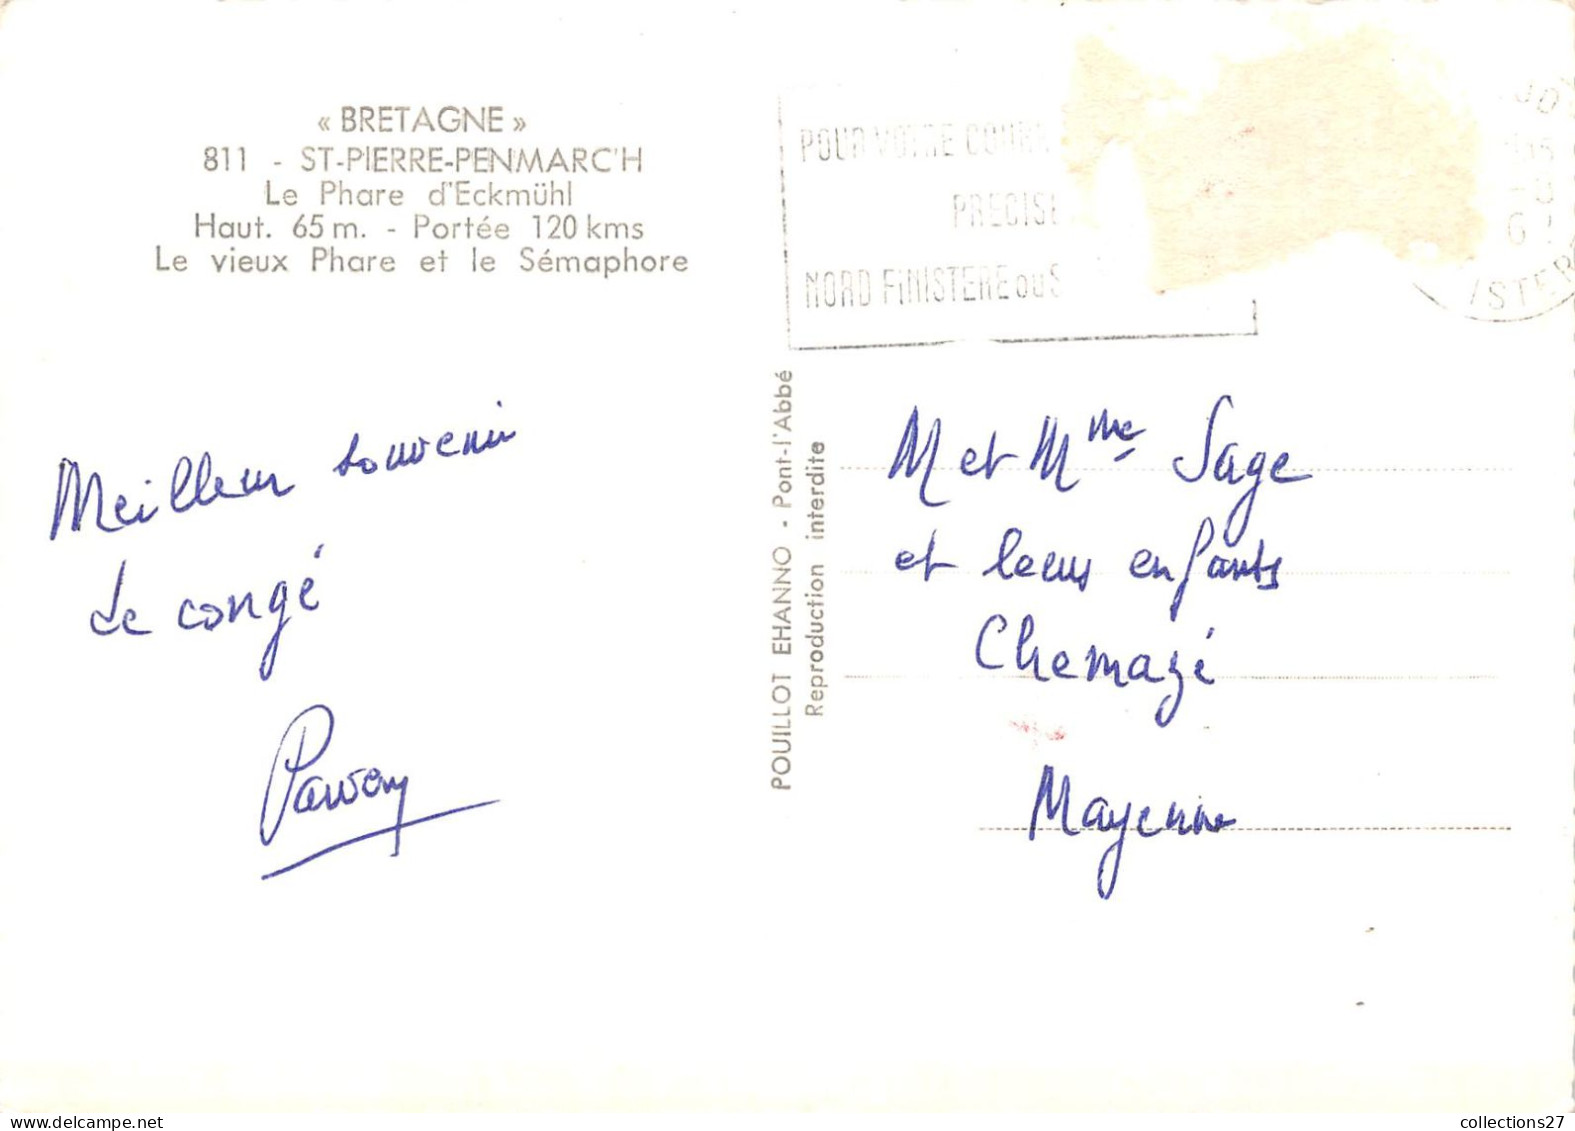 « BRETAGNE »
811 - ST-PIERRE-PENMARC'H
Le Phare d'Eckmühl
Haut. 65 m. - Portée 120 kms
Le vieux Phare et le Sémaphore
POUR VOTRE COURR
PRECISE
NORD FINISTERE ou S
ISTER
Meilleur souvenir
de congé
POUILLOT EHANNO - Pont-l'Abbé
Reproduction interdite
M et Mme Sage
et leurs enfants
Chemazé
Mayenne
collections27